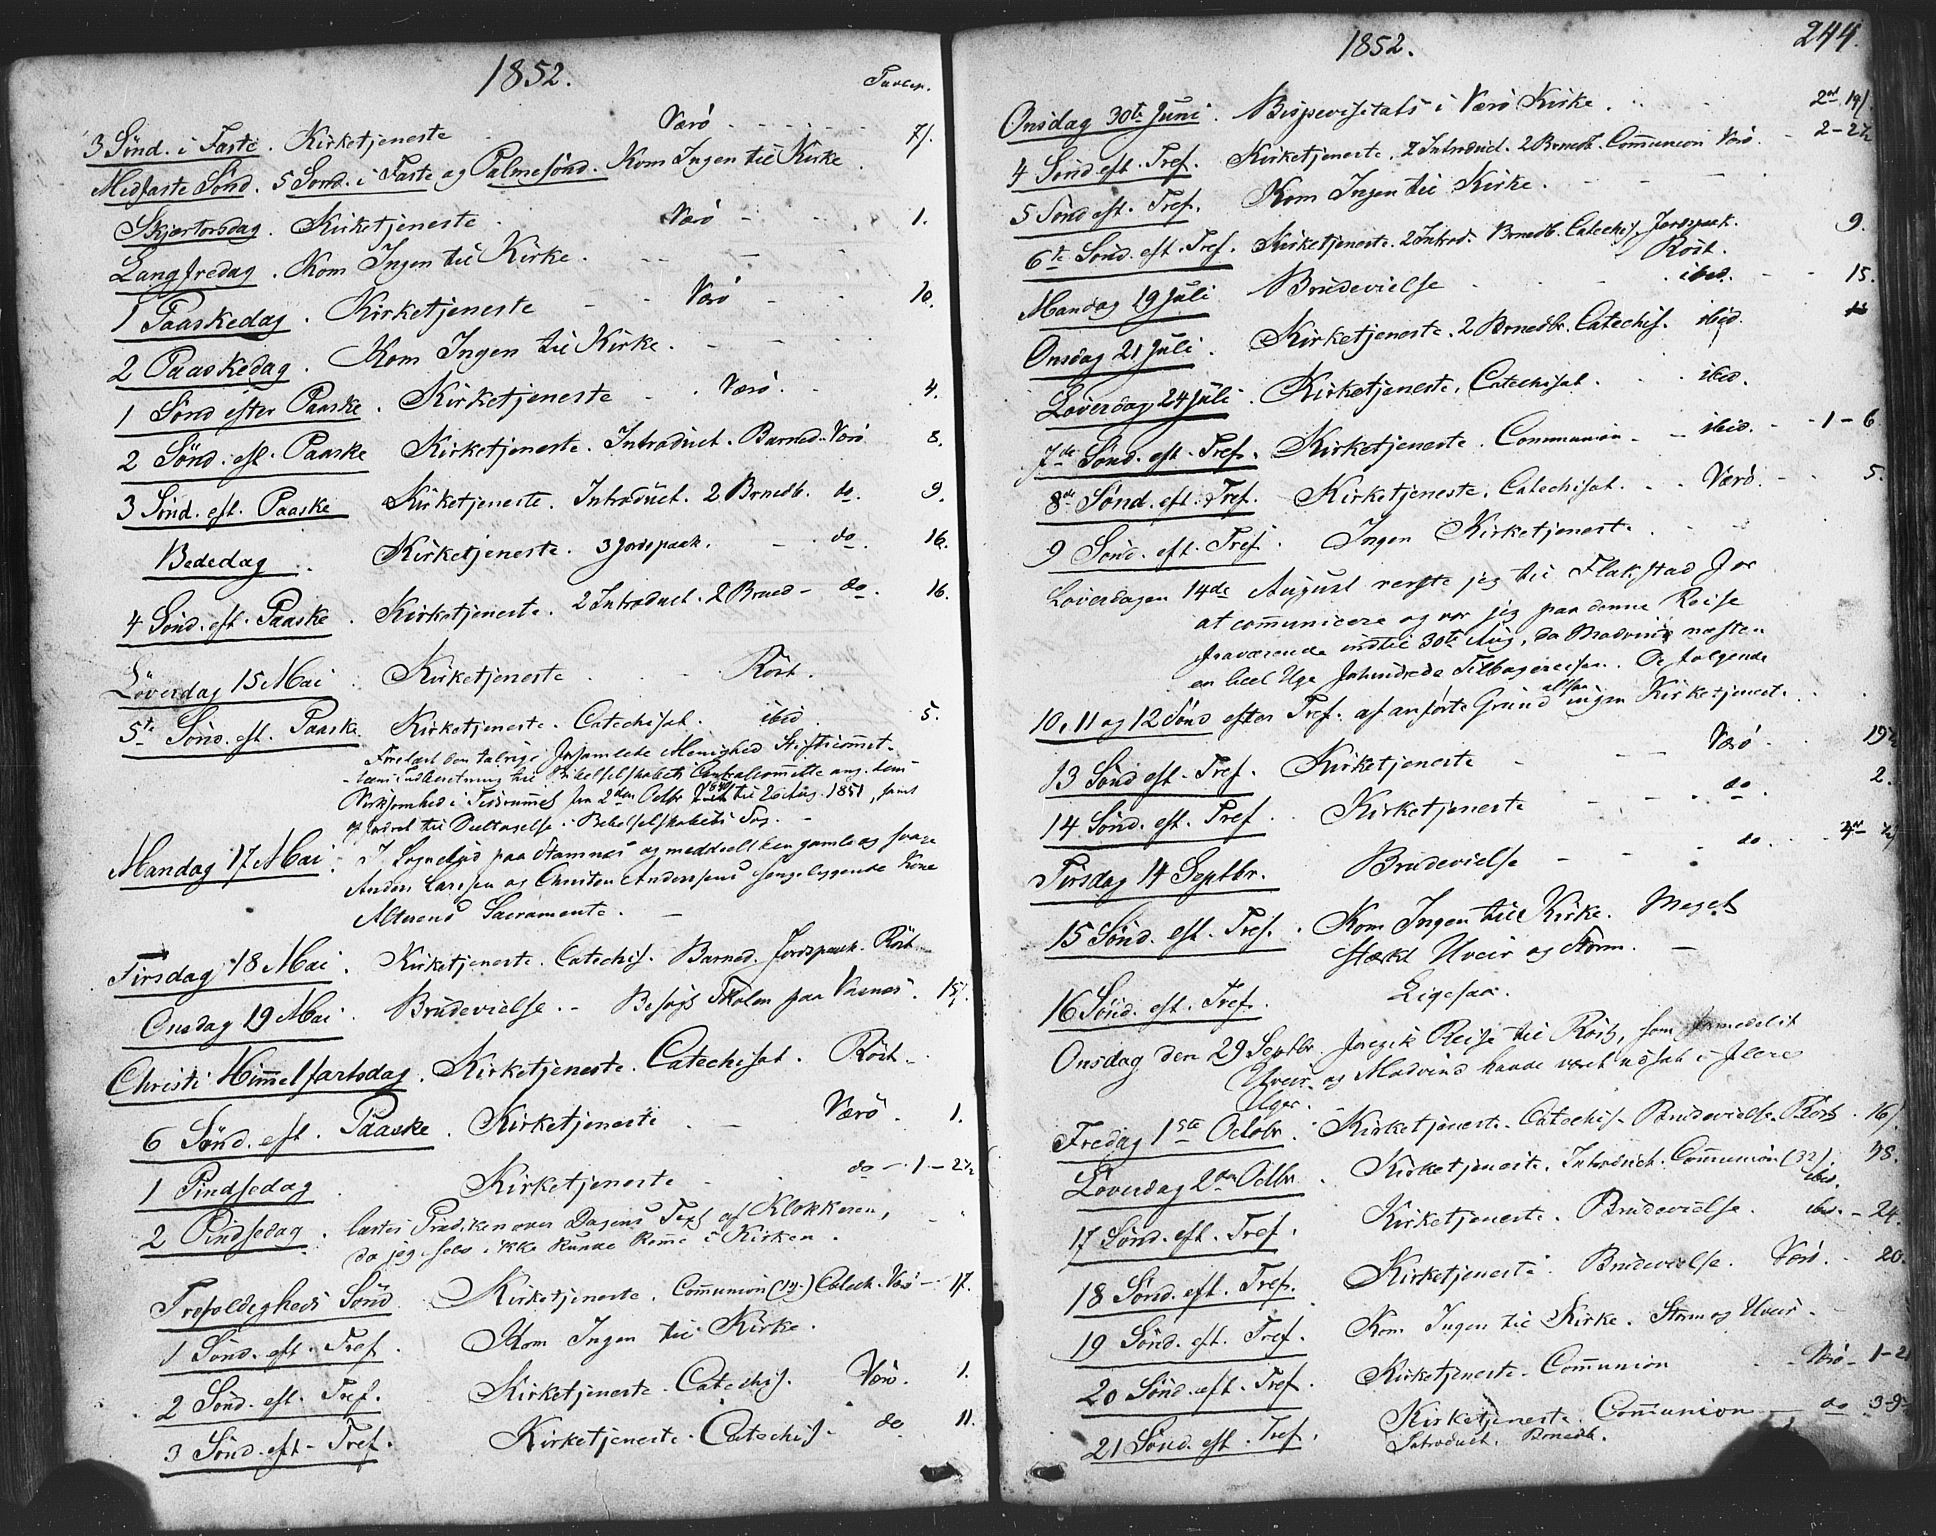 1852.
Tavlep.
3 Sönd. i Faste. Kirketjeneste Værö 7/.
Midfaste Sönd. 5 Sönd. i Faste og Palmesönd. Kom Ingen til Kirke
Skjertorsdag. Kirketjeneste Værö 1.
Langfredag. Kom Ingen til Kirke.
1 Paaskedag. Kirketjeneste Værö 10.
2 Paaskedag. Kom Ingen til Kirke.
1 Sönd efter Paaske. Kirketjeneste Værö. 4.
2 Sönd. eft. Paaske Kirketjeneste. Introduct. Barned. Værö 8.
3 Sönd. eft. Paaske Kirketjeneste. Introduct. 2 Brnedb. do. 9.
Bededag Kirketjeneste. 3 Jordspaak. do. 16.
4 Sönd. eft. Paaske. Kirketjeneste. 2 Introduct. 2 Brned do. 16.
Löverdag 15 Mai Kirketjeneste Röst.
5te Sönd. eft. Paaske Kirketjeneste. Catechisat. ibid. 5.
Forelæst den talrige forsamlede Menighed Stiftscomiteens Indberetning til Bibelselskabets Centralcomitte ang. dens
Virksomhed i Tidsrummet fra 2den Octbr til 26 Aug. 1851, samt
opfordret til Deltagelse i Bibelselskabets Sag.
Mandag 17 Mai. I Sognebud paa Stamnes og meddeelt den gamle og svage
Anders Larssen og Christen Anderssens sengeliggende Kone
Alterens Sacramente.
Tirsdag 18 Mai. Kirketjeneste. Catechis. Barned. Jordspaak. Röst
Onsdag 19 Mai. Brudevielse. Besögt Skolen paa 15/.
Christi Himmelfartsdag. Kirketjeneste. Catechisat. Röst
6 Sönd. eft. Paaske. Kirketjeneste Værö. 1.
1 Pindsedag Kirketjeneste do 1 - 2 1/2
2 Pindsedag. læstes Prædiken over Dagens Text af Klokkeren,
da jeg selv ikke kunde komme i Kirken.
Trefoldigheds Sönd Kirketjeneste. Communion (14) Catech. Værö 17.
1 Sönd. eft. Tref. Kom Ingen til Kirke.
2 Sönd. eft. Tref. Kirketjeneste. Catechis. Værö. 1.
3 Sönd. eft. Tref. Kirketjeneste. Catechis. do 11.
1852.
244.
Onsdag 30te Juni. Bispevisitats i Værö Kirke.
4 Sönd eft. Tref. Kirketjeneste. 2 Introduct. 2 Brnedb. Communion Værö. 2 - 2 1/2
5 Sönd eft. Tref. Kom Ingen til Kirke.
6te Sönd. eft. Tref. Kirketjeneste. 2 Introd. Brnedb. Catechis. Jordspaak. Röst. 9.
Mandag 19 Juli Brudevielse ibid. 15.
Onsdag 21 Juli. Kirketjeneste. 2 Brnedb. Catechis. ibid.
Löverdag 24 Juli. Kirketjeneste. Catechisat. ibid.
7de Sönd. eft. Tref. Kirketjeneste. Communion ibid. 1 - 6
8de Sönd. eft. Tref. Kirketjeneste. Catechisat. Værö. 5.
9 Sönd. eft. Tref. Ingen Kirketjeneste.
Löverdagen 14de August reiste jeg til Flakstad for
at communicere og var jeg paa denne Reise
fraværende indtil 30te Aug. da Modvind næsten
en heel Uge forhindrede Tilbagereisen. De fölgende
10, 11 og 12 Sönd efter Tref. af anförte Grund altsaa ingen Kirketjenest.
13 Sönd eft. Tref. Kirketjeneste Værö 19 1/2
14 Sönd. eft. Tref. Kirketjeneste do. 2.
Tirsdag 14 Septbr. Brudevielse do.
15 Sönd. eft. Tref. Kom Ingen till Kirke. Meget
stærkt Uveir og Storm.
16 Sönd. eft. Tref. Ligesaa.
Onsdag den 29 Septbr foregik Reise til Röst, som formedelst
Uveir og Modvind havde været udsat i flere
Uger.
Fredag 1ste Octobr. Kirketjeneste. Catechis. Brudevielse. Röst. 16/.
Löverdag 2den Octbr. Kirketjeneste. Introduct. Communion (32) ibid. 48.
17 Sönd. eft. Tref. Kirketjeneste. Brudevielse. ibid. 24.
18 Sönd. eft. Tref. Kirketjeneste. Brudevielse. Værö. 20.
19 Sönd. eft. Tref. Kom Ingen til Kirke. Storm og Uveir.
20 Sönd. eft. Tref. Kirketjeneste. Communion Værö
21 Sönd. eft. Tref. Kirketjeneste. Communion do
Introduct. Brnedb.